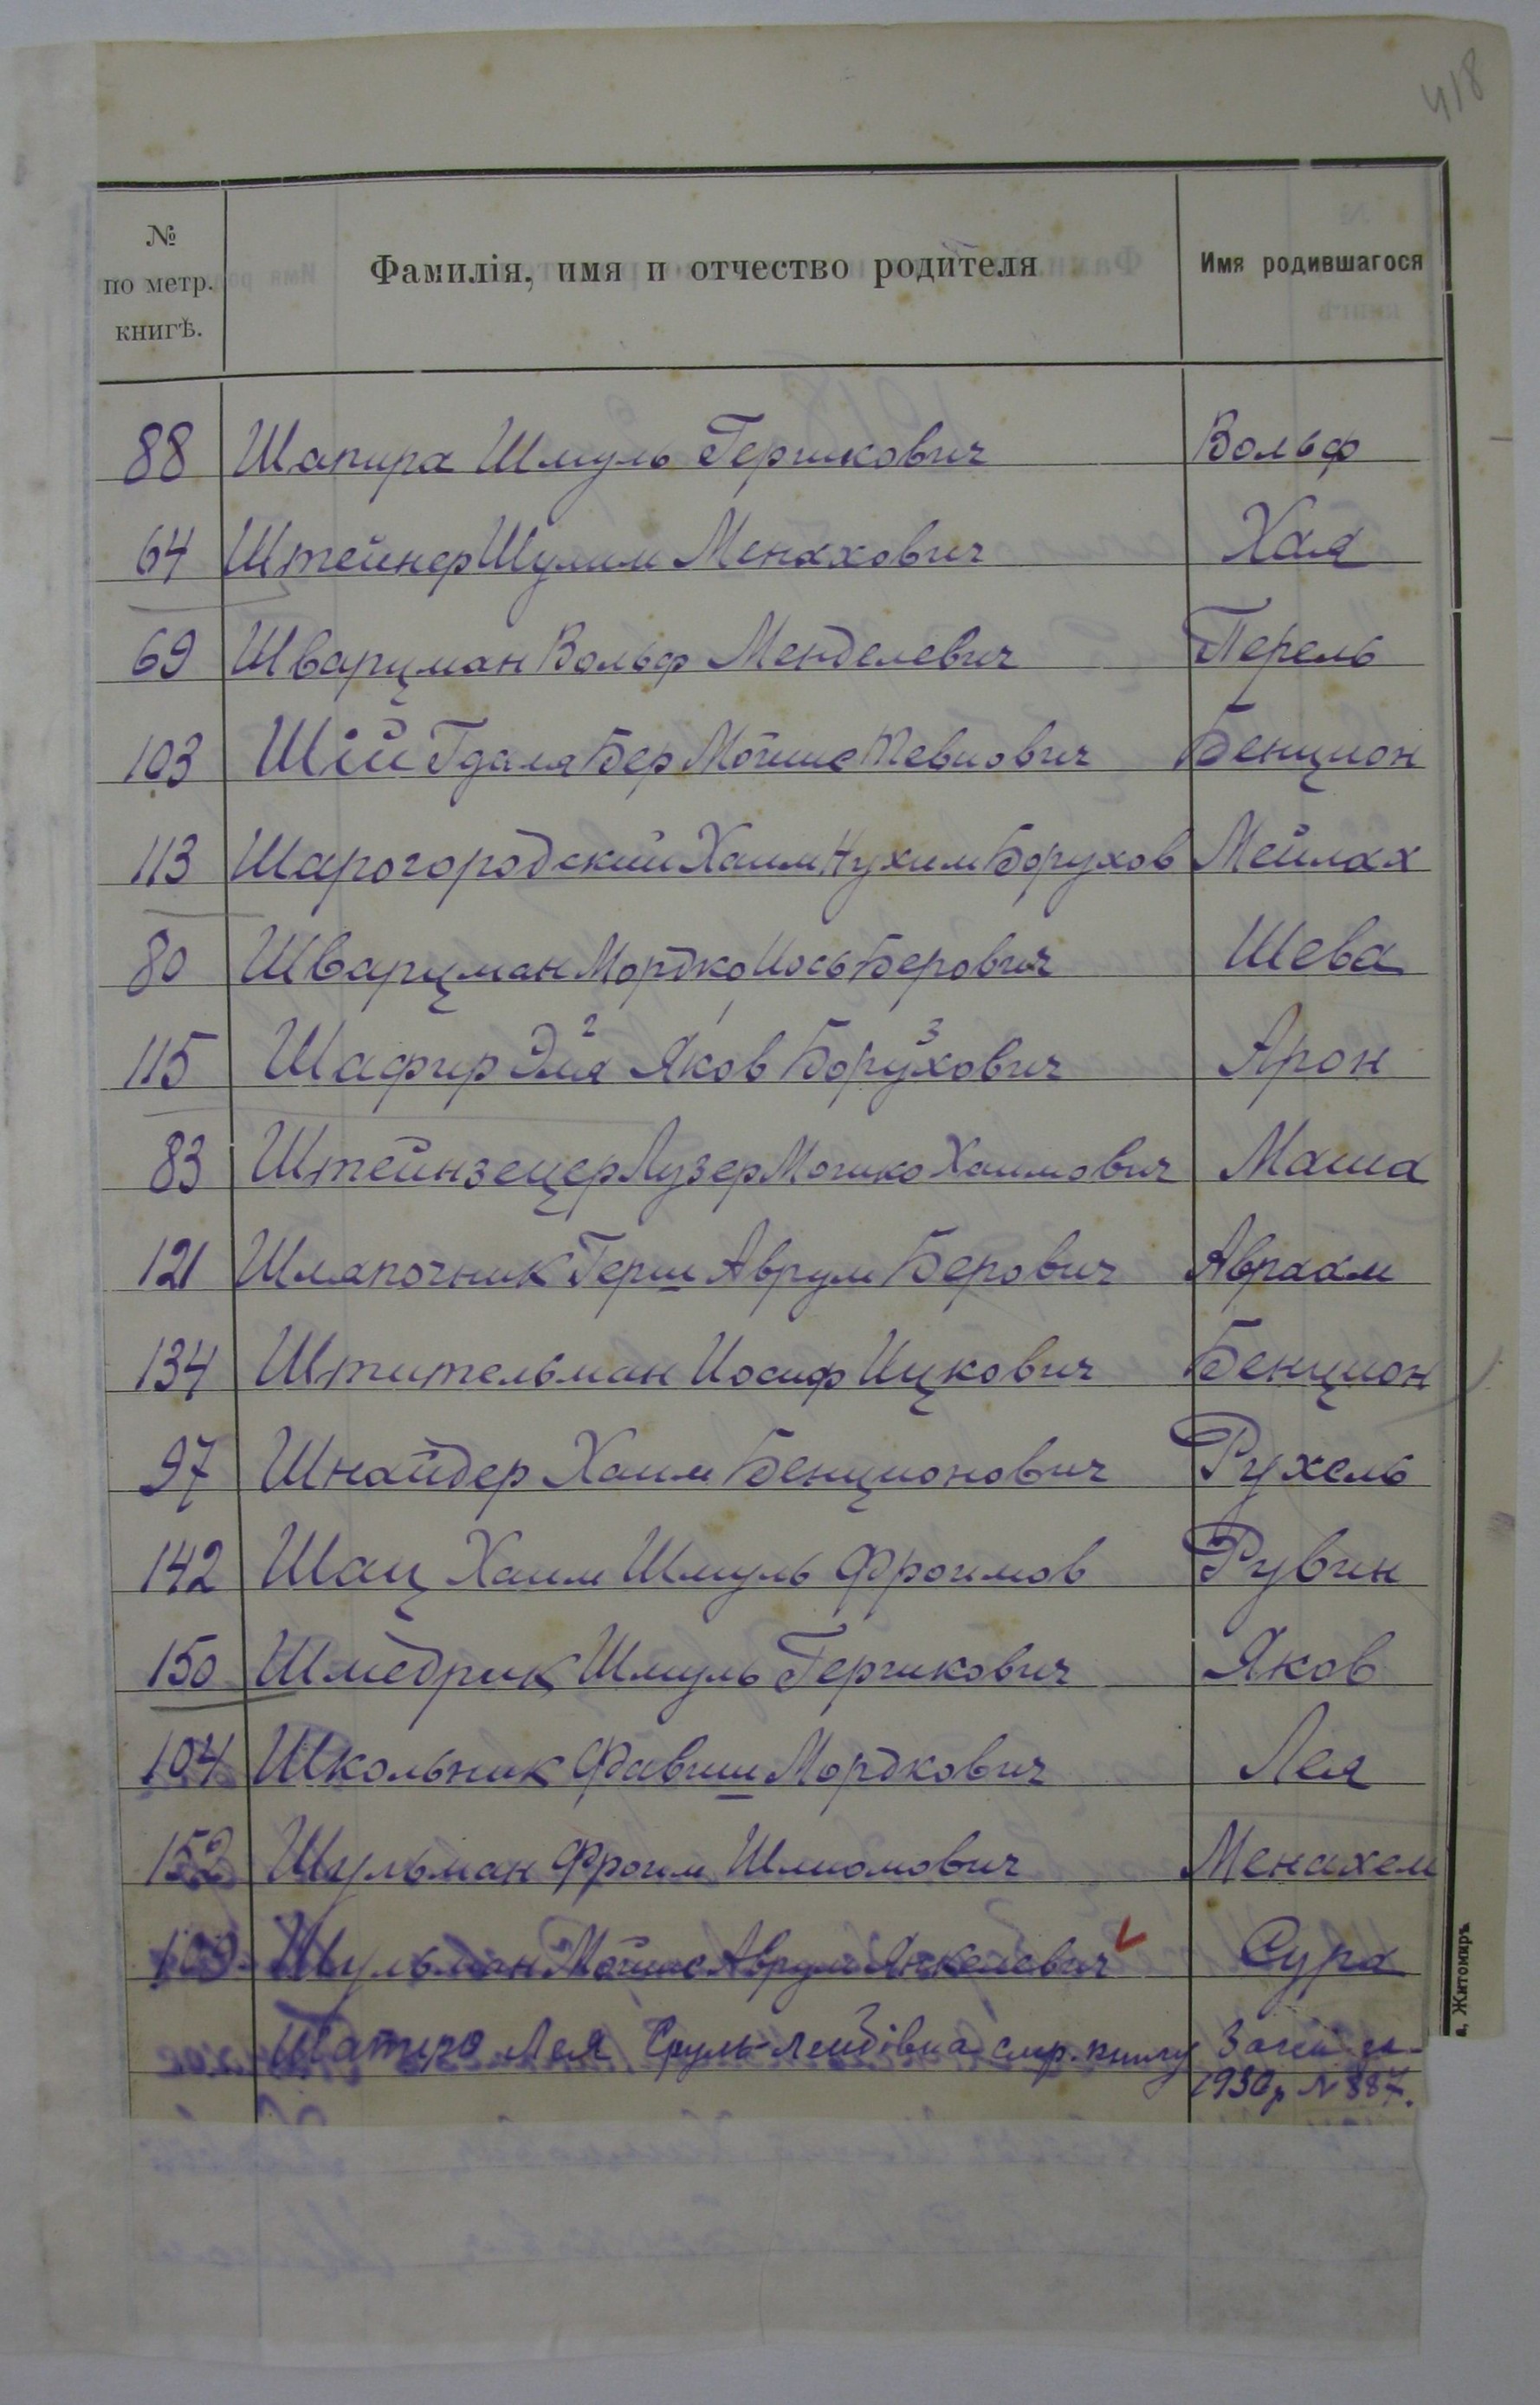 418
№
по метр.
книгѣ.
Фамилія, имя и отчество родителя
Имя родившагося
88 Шапира Шмуль Гершкович Вольф
64 Штейнер Шулим Менахович Хая
69 Шварцман Вольф Менделевич Перель
103 Шій Гдаля Бер Мойше Тевиович Бенцион
113 Шарогородский Хаим Нухим Борухов Мейлах
80 Шварцман Мордко Иось Берович Шева
115 Шафир Эля 2 Яков Борухович 3 Арон
83 Штейнзецер Лузер Мошко Хаимович Маша
121 Шляпочник Герш Аврум Берович Авраам
134 Штительман Иосиф Ицкович Бенцион
97 Шнайдер Хаим Бенционович Рухель
142 Шац Хаим Шмуль Фроимов Рувин
150 Шмедрик Шмуль Гершкович Яков
104 Школьник Фавиш Мордкович Лея
152 Шульман Фроим Шлиомович Менахем
109 Шульман Мойше Аврум Янкелевич Сура
Лея Сруль-Лейбівна
1930р № 887.
а, Житомиръ